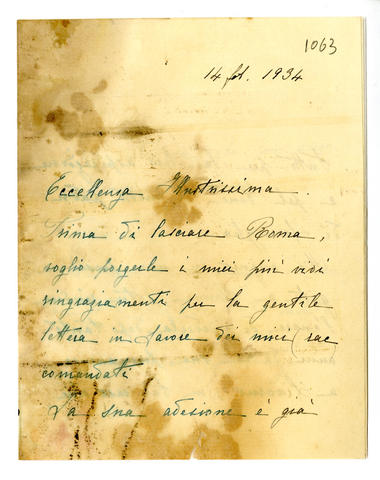 1063
14 feb. 1934
Eccellenza Illustrissima.
Prima di lasciare Roma,
voglio porgerle i miei più vivi
ringraziamenti per la gentile
lettera in favore dei miei rac
comandati
La sua adesione è già